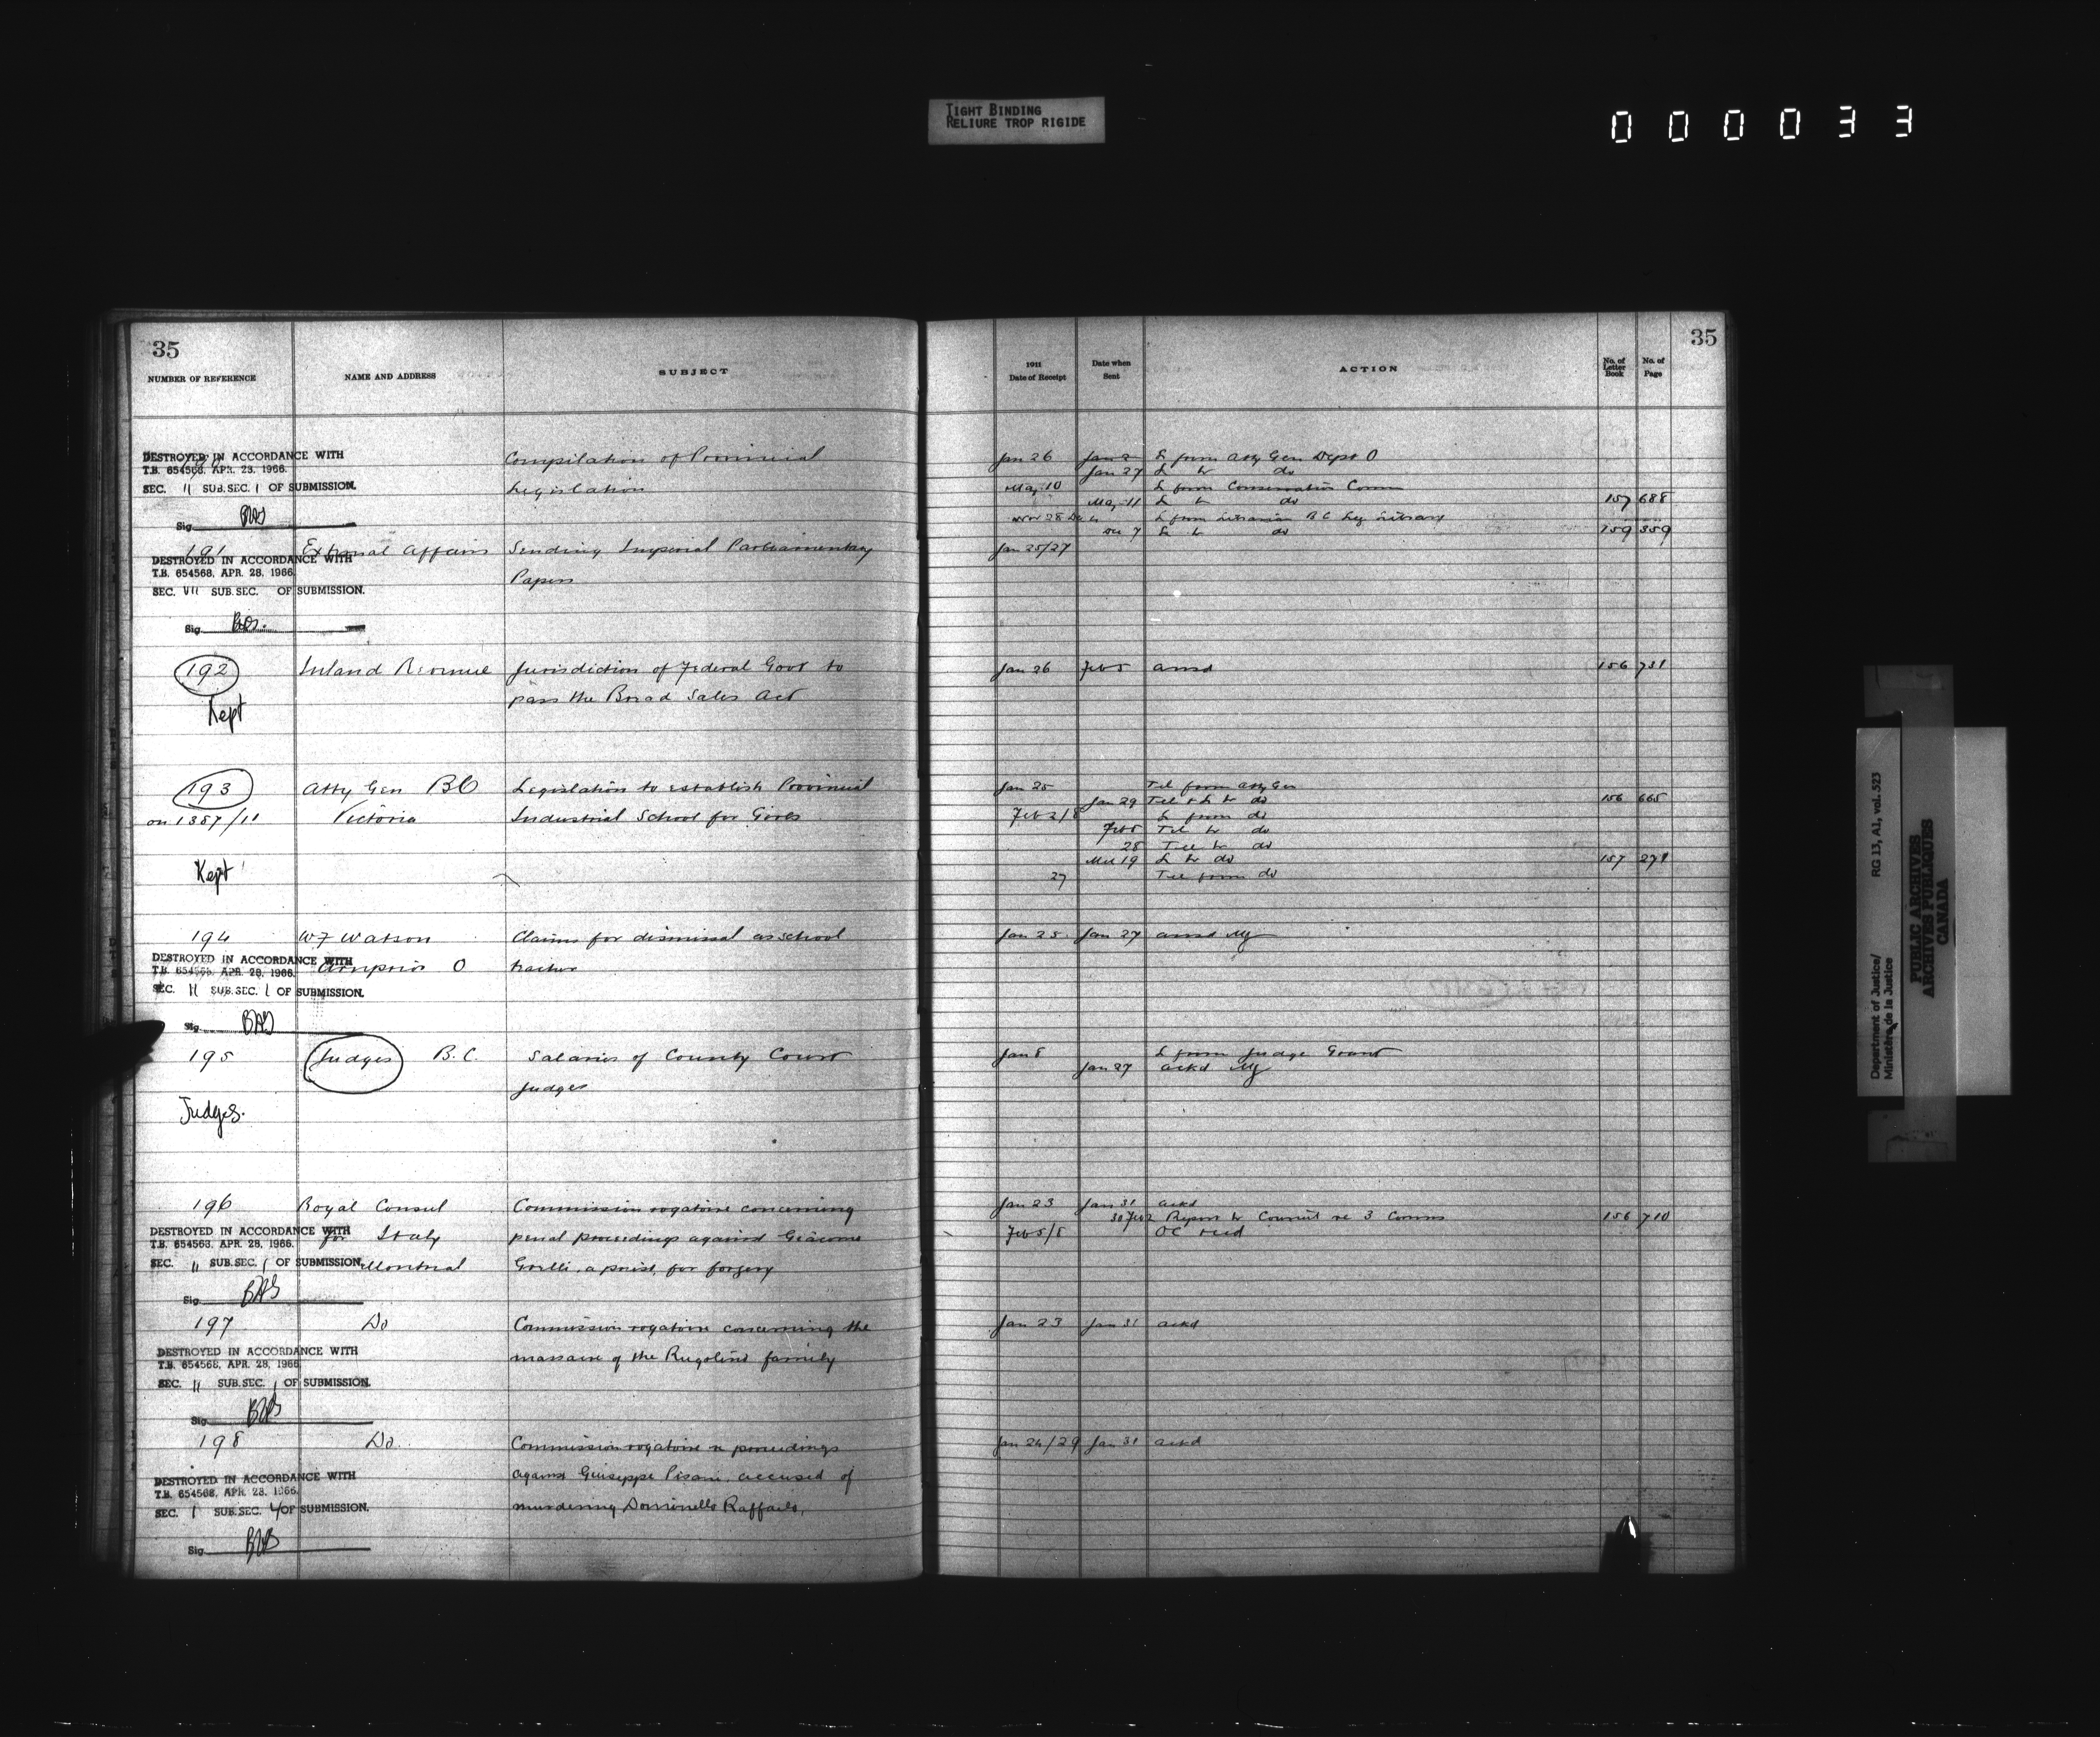 TIGHT BINDING
RELIURE TROP RIGIDE
000033
35
NUMBER OF REFERENCE NAME AND ADDRESS SUBJECT
DESTROYED IN ACCORDANCE WITH
T.B. 654568, APR. 28, 1966.
SEC. 11 SUB.SEC. 1 OF SUBMISSION.
Sig. BAS
Compilation of Provincial
Legislation
191 External Affairs Sending Imperial Parliamentary
Papers
DESTROYED IN ACCORDANCE WITH
T.B. 654568, APR. 28, 1966.
SEC. VII SUB.SEC. OF SUBMISSION.
Sig.
192 Inland Revenue Jurisdiction of Federal Govt to
pass the Bread Sales Act
Kept
193 Atty Gen BC Legislation to establish Provincial
on 1357/11 Victoria Industrial School for Girls
Kept
194 W F Watson Claims for dismissal as school
Arnprior O teacher
DESTROYED IN ACCORDANCE WITH
T.B. 654568, APR. 28, 1966.
SEC. 11 SUB.SEC. 1 OF SUBMISSION.
Sig. BAS
195 Judges B.C. Salaries of County Court
Judges
Judges.
196 Royal Consul Commission rogatoire concerning
for Italy penal proceedings against Giacomo
Montreal a priest, for forgery
DESTROYED IN ACCORDANCE WITH
T.B. 654568, APR. 28, 1966.
SEC. 11 SUB.SEC. 1 OF SUBMISSION.
Sig. BAS
197 Do Commission rogatoire concerning the
massacre of the Rugolino family
DESTROYED IN ACCORDANCE WITH
T.B. 654568, APR. 28, 1966.
SEC. 11 SUB.SEC. 1 OF SUBMISSION.
Sig. BAS
198 Do. Commission rogatoire re proceedings
against Giuseppe Pisani, accused of
murdering Dominello Raffaelo,
DESTROYED IN ACCORDANCE WITH
T.B. 654568, APR. 28, 1966.
SEC. 1 SUB.SEC. 4 OF SUBMISSION.
Sig. BAS
35
1911
Date of Receipt Date when Sent ACTION No. of Letter Book No. of Page
Jan 26 Jan 2 L from Atty Gen Dept O
Jan 27 L to do
May 10 L from Conservation Comm
May 11 L to do 157 688
Nov 28 L from Librarian B C Leg Library
Dec 7 L to do 159 359
Jan 25/27
Jan 26 Feb 5 ansd 156 731
Jan 25 Tel from Atty Gen
Jan 29 Tel & L to do 156 665
Feb 2/8 L from do
Feb 5 Tel to do
28 Tel to do
Mch 19 L to do 157 271
27 Tel from do
Jan 25 Jan 27 ansd
Jan 8 L from Judge Grant
Jan 27 ackd
Jan 23 Jan 31 ackd
Feb 2 Report to Council re 3 Comms 156 710
Feb 5/8 OC recd
Jan 23 Jan 31 ackd
Jan 24/29 Jan 31 ackd
Department of Justice/
Ministère de la Justice
RG 13, A1, vol. 523
PUBLIC ARCHIVES
ARCHIVES PUBLIQUES
CANADA